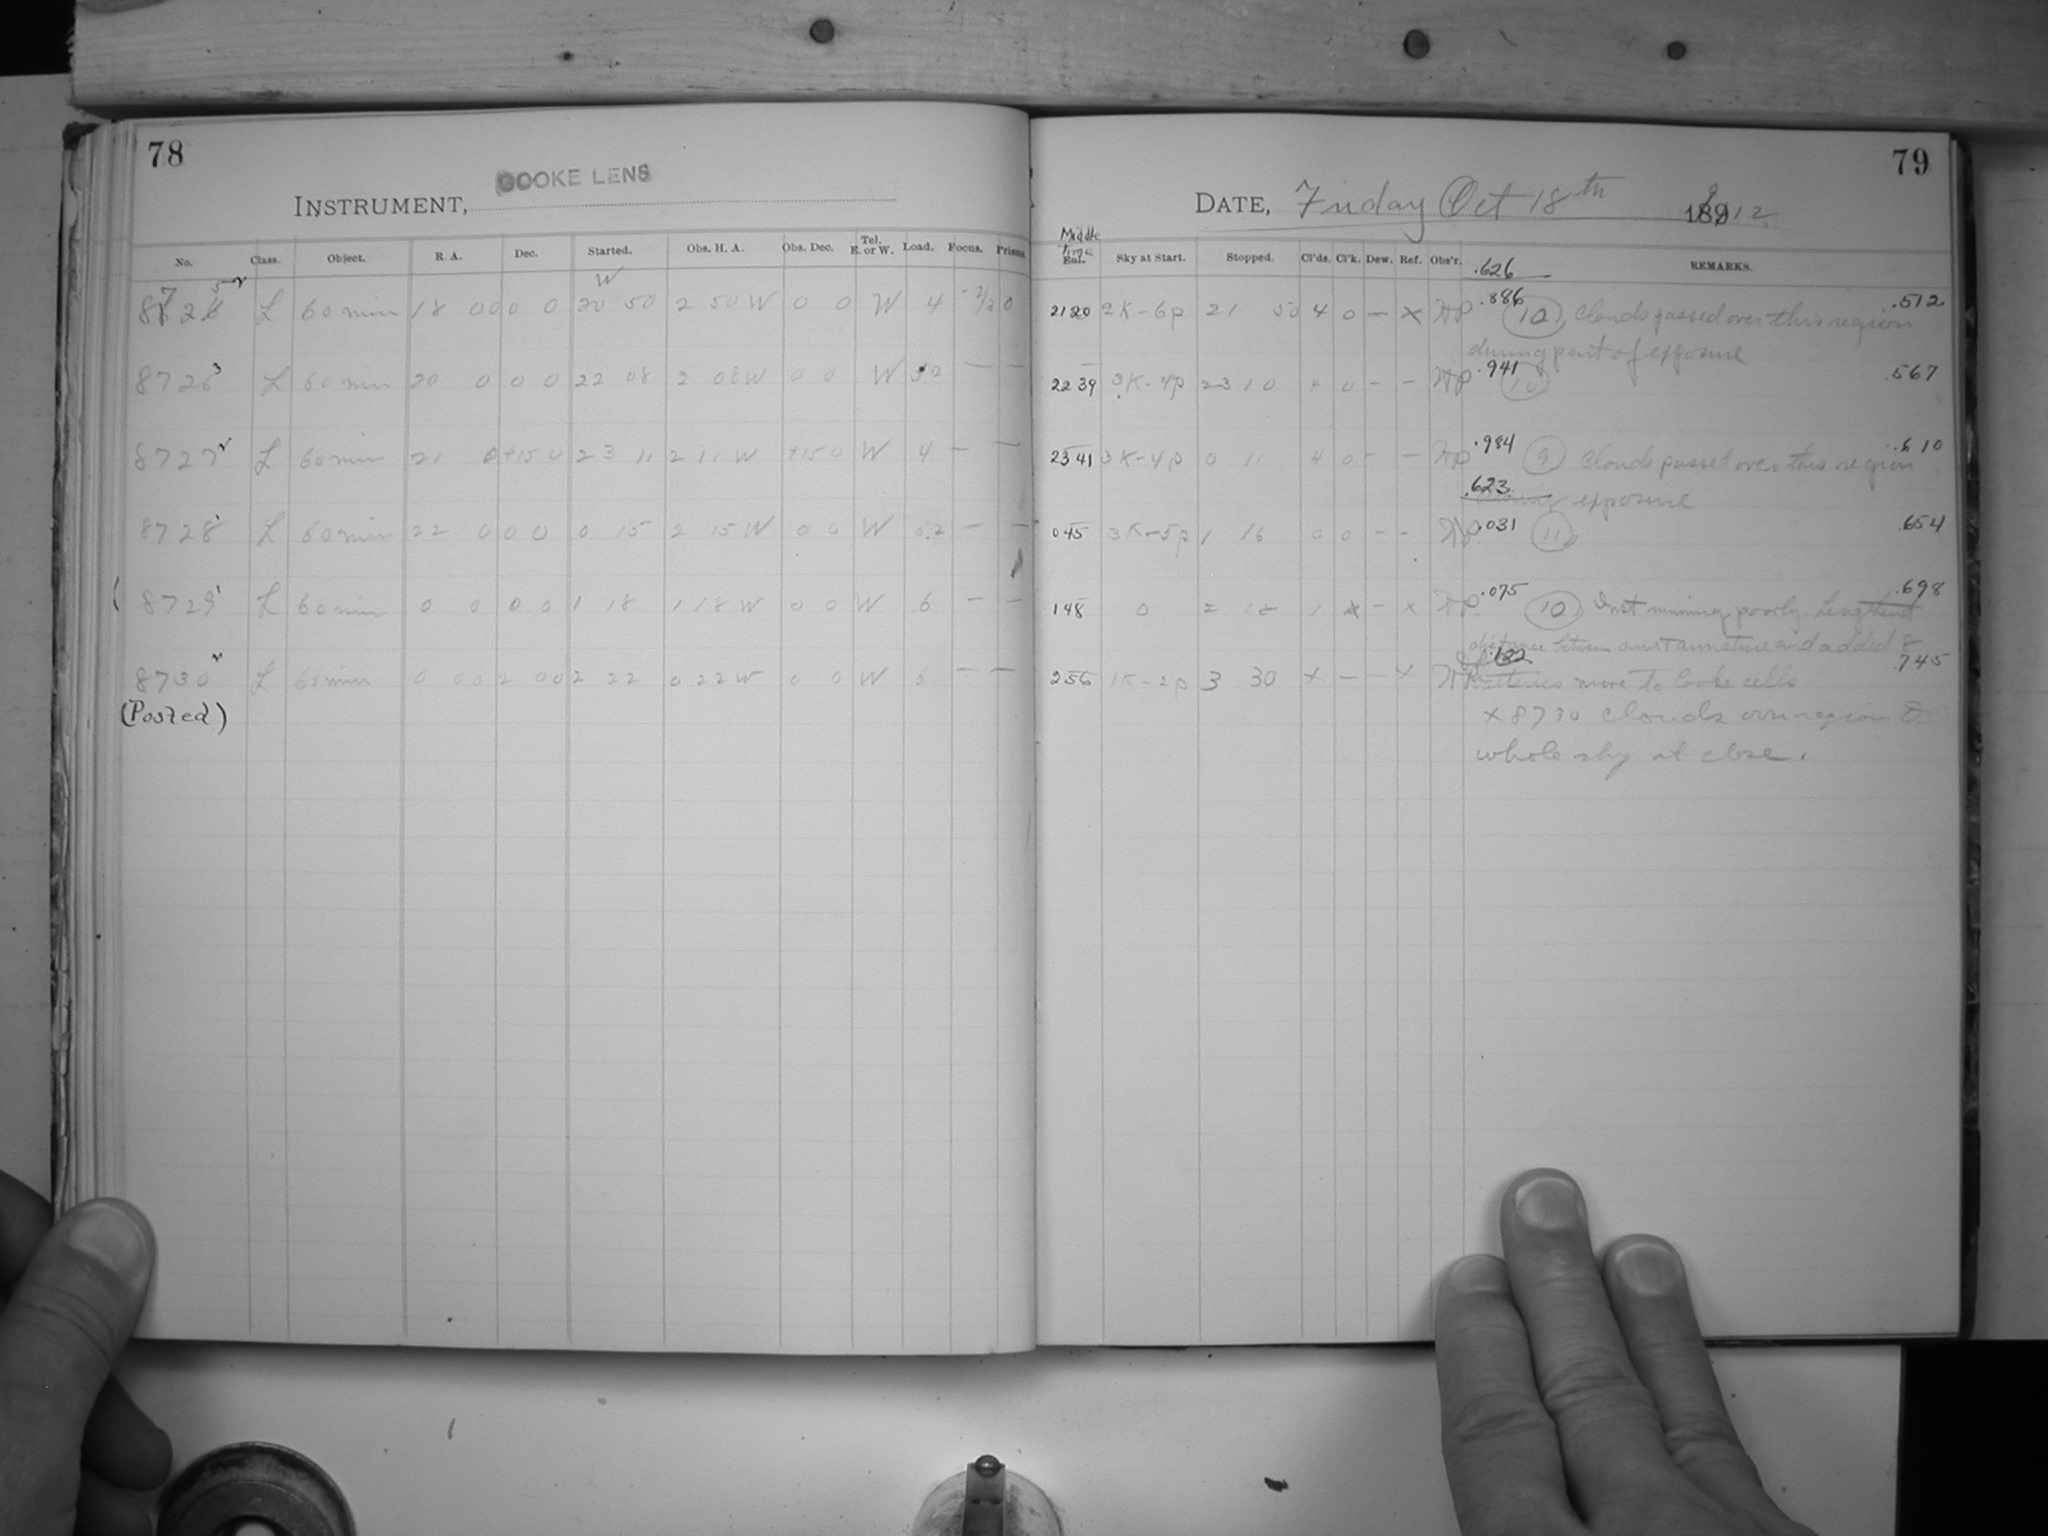 78
COOKE LENS
INSTRUMENT,
No. Class. Object. R. A. Dec. Started. Obs. H. A. Obs. Dec. Tel. E. or W. Load. Focus. Prisms
W
8725 L 60 min 18 0 0 0 0 20 50 2 50 W 0 0 W 4 0
8726 L 60 min 20 0 0 0 22 08 2 08 W 0 0 W 5.2 — —
8727 L 60 min 21 0 +15 0 23 11 2 11 W +15 0 W 4 — —
8728 L 60 min 22 0 0 0 0 15 2 15 W 0 0 W 5.2 — —
8729 L 60 min 0 0 0 0 1 18 1 18 W 0 0 W 6 — —
8730 L 60 min 0 0 0 2 22 0 22 W 0 0 W 6 — —
(Posted)
79
DATE, Friday Oct 18th 1912
Middle Time
Sky at Start. Stopped. Cl'ds. Cl'k. Dew. Ref. Obs'r. REMARKS.
.626
21 20 2K-6p 21 50 4 0 — X HP .886 (10) Clouds passed over this region .512
during part of exposure
22 39 3K-4p 23 10 4 0 — — HP .941 (10) .567
23 41 3K-4p 0 11 4 0 — — HP .984 (9) Clouds passed over this region .610
.623 during exposure
0 45 3K-5p 1 16 0 0 — — HP .031 (11) .654
1 48 0 2 18 1 X — X HP .075 (10) Inst running poorly. Lengthened .698
distance between armature and added 8
2 56 1K-2p 3 30 X — — X HP .122 batteries more to Cooke cells .745
X 8730 Clouds over region &
whole sky at close.